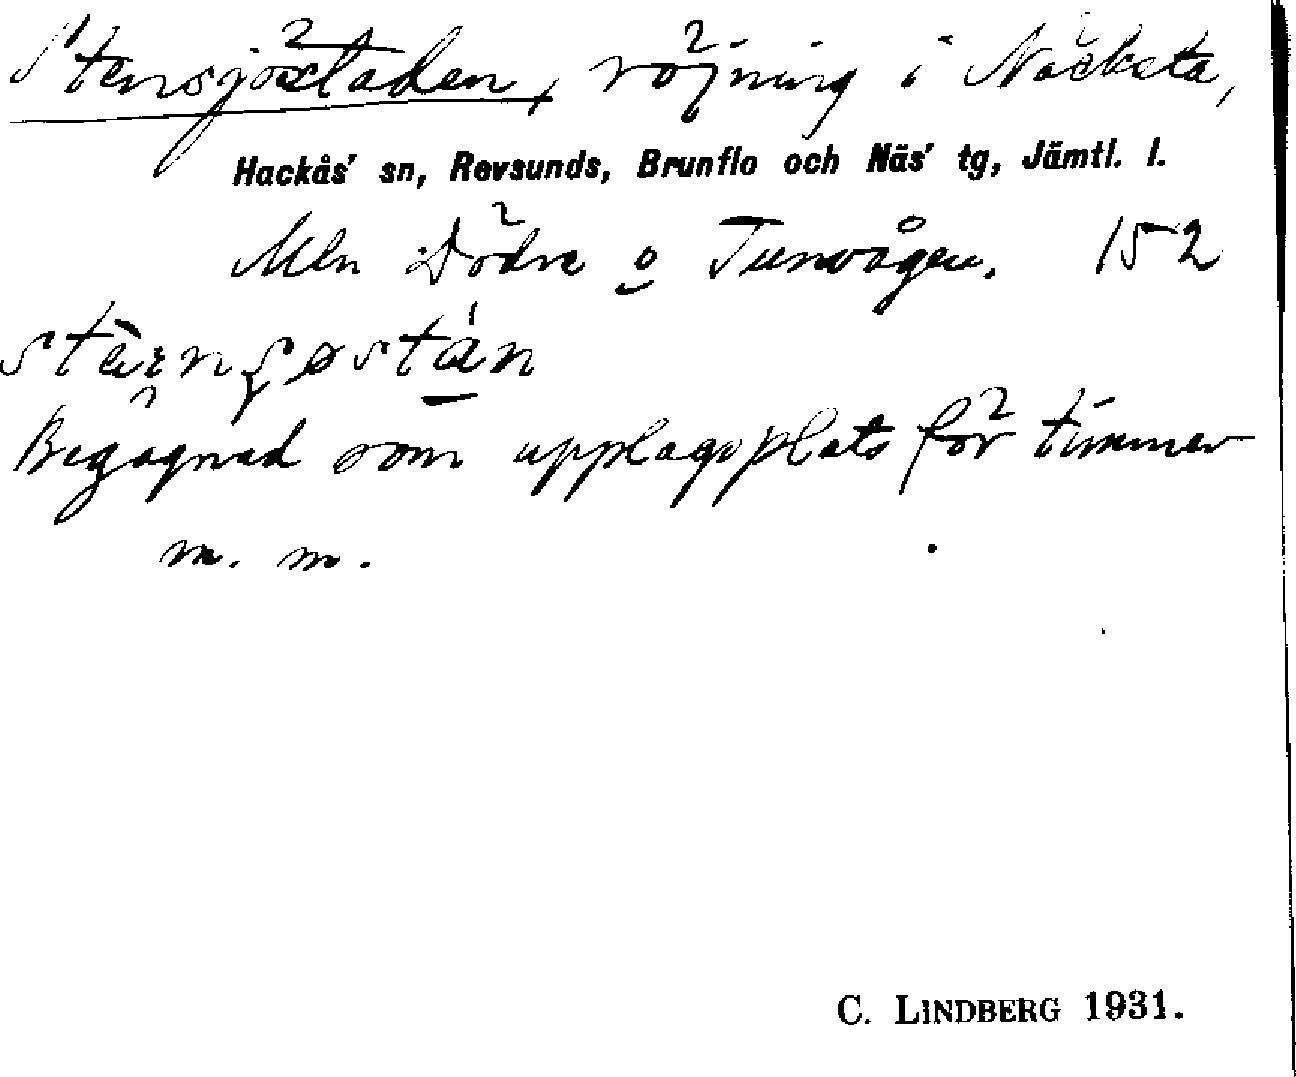 Stensjöstaden, röjning i Näcksta,
Hackås' sn, Revsunds, Brunflo och Näs' tg, Jämtl. l.
Mln Dödre o Tunvågen. 152
Begagnad som upplagsplats för timmer
m. m.
C. LINDBERG 1931.